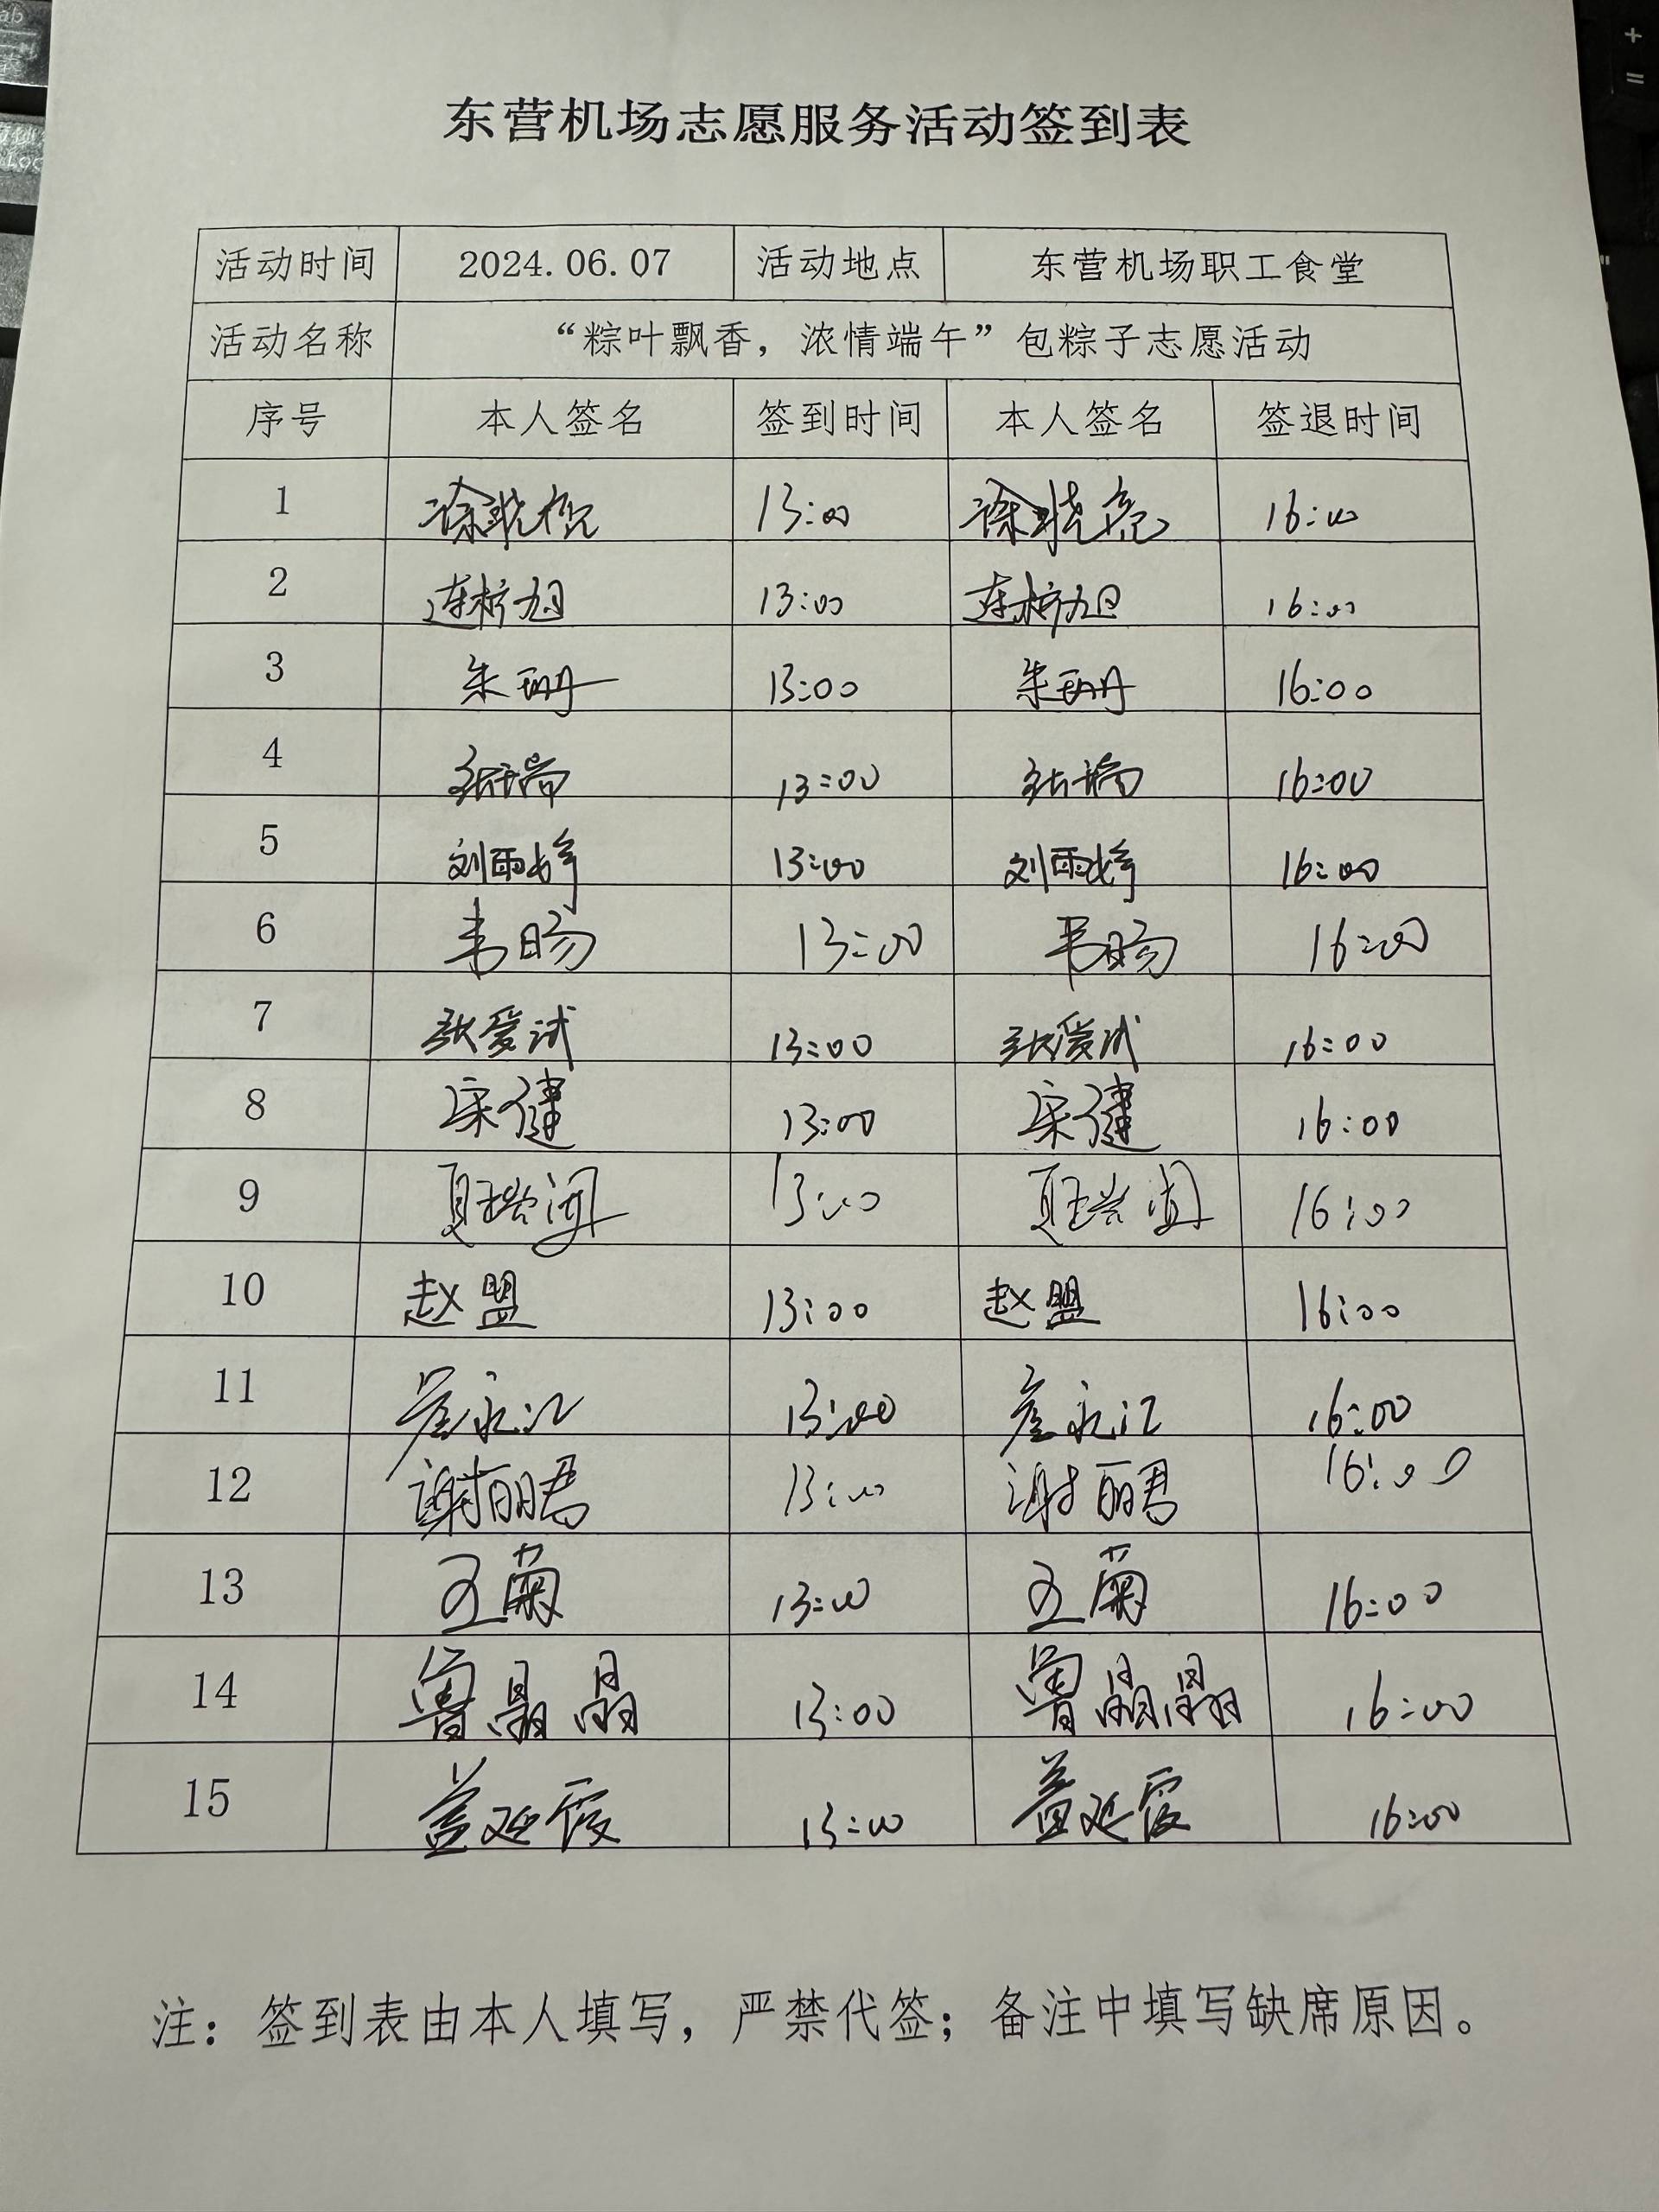 东营机场志愿服务活动签到表
活动时间 2024.06.07 活动地点 东营机场职工食堂
活动名称 “粽叶飘香，浓情端午”包粽子志愿活动
序号 本人签名 签到时间 本人签名 签退时间
1 徐晓亮 13:00 徐晓亮 16:00
2 连柠旭 13:00 连柠旭 16:00
3 朱珊 13:00 朱珊 16:00
4 13:00 16:00
5 刘雨婷 13:00 刘雨婷 16:00
6 韦旸 13:00 韦旸 16:00
7 张爱试 13:00 张爱试 16:00
8 宋健 13:00 宋健 16:00
9 13:00 16:00
10 赵盟 13:00 赵盟 16:00
11 13:00 16:00
12 谢丽君 13:00 谢丽君 16:00
13 王菊 13:00 王菊 16:00
14 鲁晶晶 13:00 鲁晶晶 16:00
15 盖延霞 13:00 盖延霞 16:00
注：签到表由本人填写，严禁代签；备注中填写缺席原因。